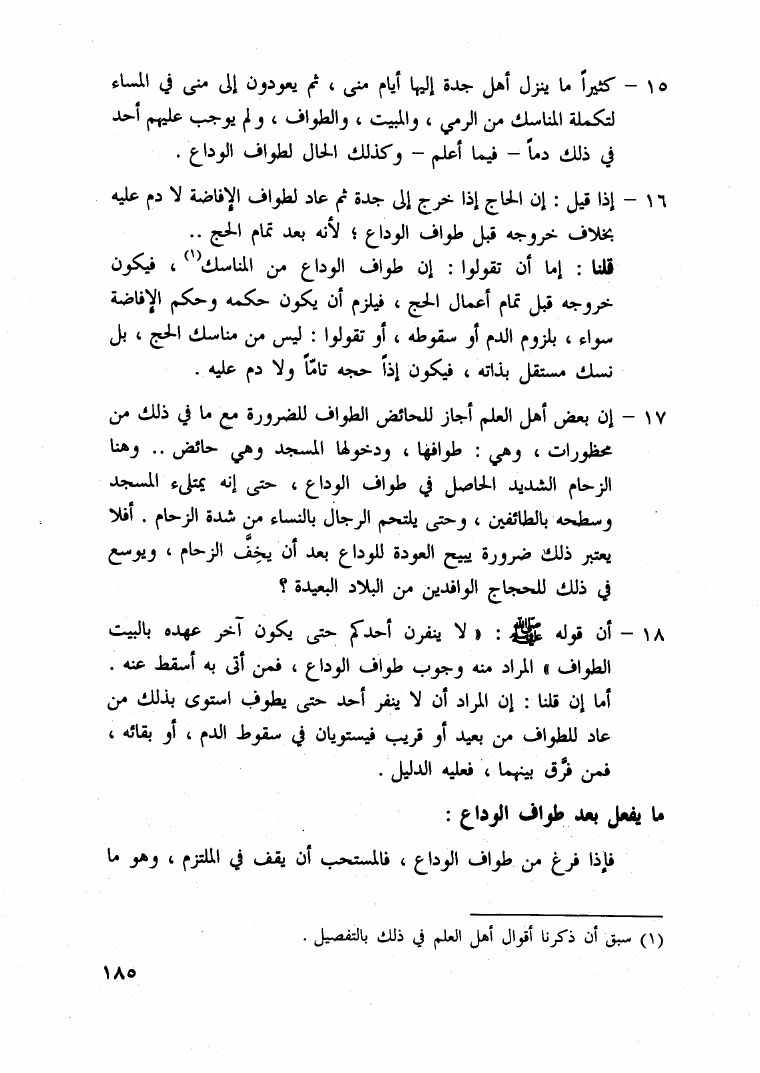 ١٥ – كثيراً ما ينزل أهل جدة إليها أيام منى ، ثم يعودون إلى منى في المساء
لتكملة المناسك من الرمي ، والمبيت ، والطواف ، ولم يوجب عليهم أحد
في ذلك دماً – فيما أعلم – وكذلك الحال لطواف الوداع .
١٦ – إذا قيل : إن الحاج إذا خرج إلى جدة ثم عاد لطواف الإفاضة لا دم عليه
بخلاف خروجه قبل طواف الوداع ؛ لأنه بعد تمام الحج ..
قلنا : إما أن تقولوا : إن طواف الوداع من المناسك(١) ، فيكون
خروجه قبل تمام أعمال الحج ، فيلزم أن يكون حكمه وحكم الإفاضة
سواء ، بلزوم الدم أو سقوطه ، أو تقولوا : ليس من مناسك الحج ، بل
نسك مستقل بذاته ، فيكون إذاً حجه تامّاً ولا دم عليه .
١٧ – إن بعض أهل العلم أجاز للحائض الطواف للضرورة مع ما في ذلك من
محظورات ، وهي : طوافها ، ودخولها المسجد وهي حائض .. وهنا
الزحام الشديد الحاصل في طواف الوداع ، حتى إنه يمتلىء المسجد
وسطحه بالطائفين ، وحتى يلتحم الرجال بالنساء من شدة الزحام . أفلا
يعتبر ذلك ضرورة يبيح العودة للوداع بعد أن يخِفَّ الزحام ، ويوسع
في ذلك للحجاج الوافدين من البلاد البعيدة ؟
١٨ – أن قوله ﷺ : « لا ينفرن أحدكم حتى يكون آخر عهده بالبيت
الطواف » المراد منه وجوب طواف الوداع ، فمن أتى به أسقط عنه .
أما إن قلنا : إن المراد أن لا ينفر أحد حتى يطوف استوى بذلك من
عاد للطواف من بعيد أو قريب فيستويان في سقوط الدم ، أو بقائه ،
فمن فرَّق بينهما ، فعليه الدليل .
ما يفعل بعد طواف الوداع :
فإذا فرغ من طواف الوداع ، فالمستحب أن يقف في الملتزم ، وهو ما
(١) سبق أن ذكرنا أقوال أهل العلم في ذلك بالتفصيل .
١٨٥